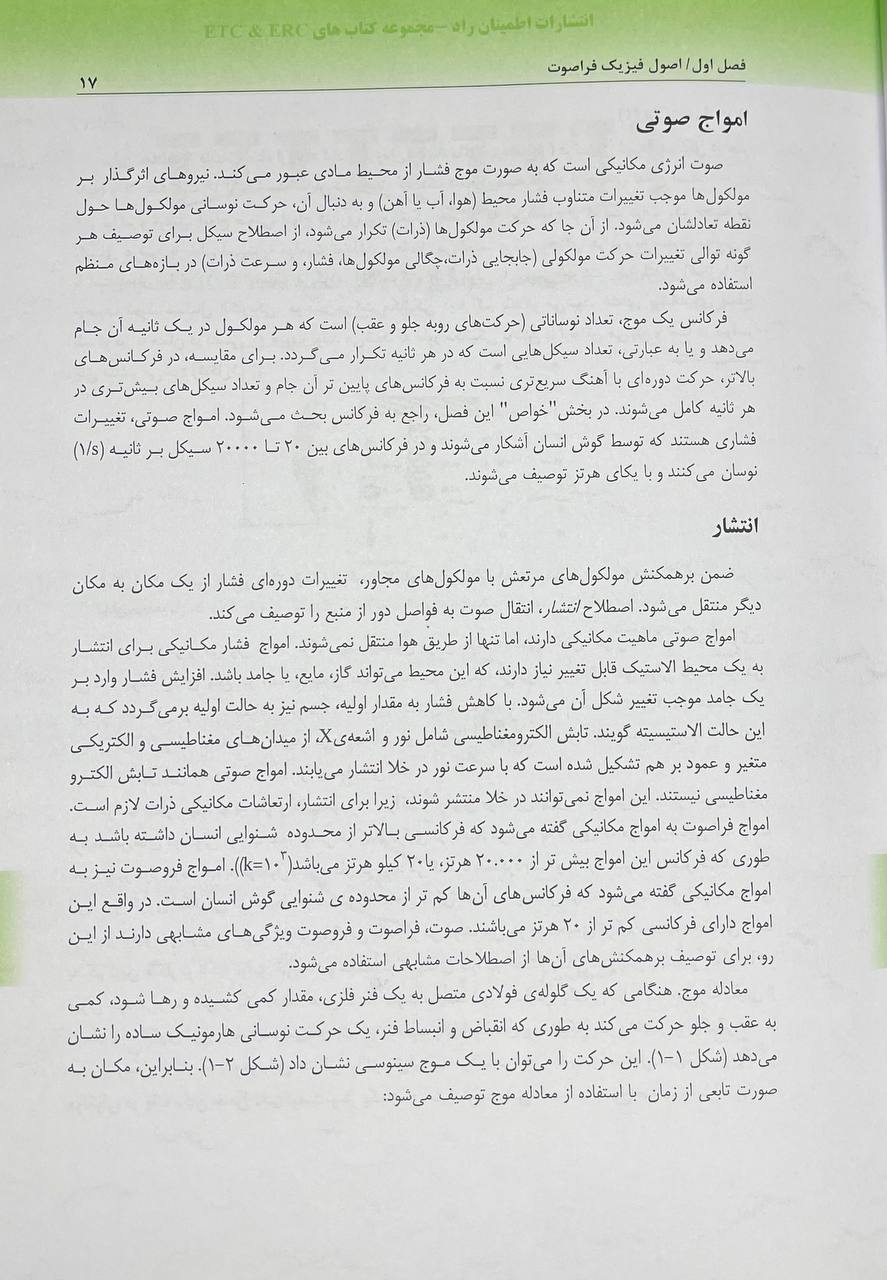 انتشارات اطمینان راد -مجموعه کتاب های ETC & ERC
فصل اول/ اصول فیزیک فراصوت
۱۷
امواج صوتی
صوت انرژی مکانیکی است که به صورت موج فشار از محیط مادی عبور می‌کند. نیروهای اثرگذار بر
مولکول‌ها موجب تغییرات متناوب فشار محیط (هوا، آب یا آهن) و به دنبال آن، حرکت نوسانی مولکول‌ها حول
نقطه تعادلشان می‌شود. از آن جا که حرکت مولکول‌ها (ذرات) تکرار می‌شود، از اصطلاح سیکل برای توصیف هر
گونه توالی تغییرات حرکت مولکولی (جابجایی ذرات،چگالی مولکول‌ها، فشار، و سرعت ذرات) در بازه‌های منظم
استفاده می‌شود.
فرکانس یک موج، تعداد نوساناتی (حرکت‌های روبه جلو و عقب) است که هر مولکول در یک ثانیه آن جام
می‌دهد و یا به عبارتی، تعداد سیکل‌هایی است که در هر ثانیه تکرار می‌گردد. برای مقایسه، در فرکانس‌های
بالاتر، حرکت دوره‌ای با آهنگ سریع‌تری نسبت به فرکانس‌های پایین تر آن جام و تعداد سیکل‌های بیش‌تری در
هر ثانیه کامل می‌شوند. در بخش"خواص" این فصل، راجع به فرکانس بحث می‌شود. امواج صوتی، تغییرات
فشاری هستند که توسط گوش انسان آشکار می‌شوند و در فرکانس‌های بین ۲۰ تا ۲۰۰۰۰ سیکل بر ثانیه (۱/s)
نوسان می‌کنند و با یکای هرتز توصیف می‌شوند.
انتشار
ضمن برهمکنش مولکول‌های مرتعش با مولکول‌های مجاور، تغییرات دوره‌ای فشار از یک مکان به مکان
دیگر منتقل می‌شود. اصطلاح انتشار، انتقال صوت به فواصل دور از منبع را توصیف می‌کند.
امواج صوتی ماهیت مکانیکی دارند، اما تنها از طریق هوا منتقل نمی‌شوند. امواج فشار مکانیکی برای انتشار
به یک محیط الاستیک قابل تغییر نیاز دارند، که این محیط می‌تواند گاز، مایع، یا جامد باشد. افزایش فشار وارد بر
یک جامد موجب تغییر شکل آن می‌شود. با کاهش فشار به مقدار اولیه، جسم نیز به حالت اولیه برمی‌گردد که به
این حالت الاستیسیته گویند. تابش الکترومغناطیسی شامل نور و اشعه‌ی X، از میدان‌های مغناطیسی و الکتریکی
متغیر و عمود بر هم تشکیل شده است که با سرعت نور در خلا انتشار می‌یابند. امواج صوتی همانند تابش الکترو
مغناطیسی نیستند. این امواج نمی‌توانند در خلا منتشر شوند، زیرا برای انتشار، ارتعاشات مکانیکی ذرات لازم است.
امواج فراصوت به امواج مکانیکی گفته می‌شود که فرکانسی بالاتر از محدوده شنوایی انسان داشته باشد به
طوری که فرکانس این امواج بیش تر از ۲۰.۰۰۰ هرتز، یا۲۰ کیلو هرتز می‌باشد(k=۱۰³)). امواج فروصوت نیز به
امواج مکانیکی گفته می‌شود که فرکانس‌های آن‌ها کم تر از محدوده ی شنوایی گوش انسان است. در واقع این
امواج دارای فرکانسی کم تر از ۲۰ هرتز می‌باشند. صوت، فراصوت و فروصوت ویژگی‌های مشابهی دارند از این
رو، برای توصیف برهمکنش‌های آن‌ها از اصطلاحات مشابهی استفاده می‌شود.
معادله موج. هنگامی که یک گلوله‌ی فولادی متصل به یک فنر فلزی، مقدار کمی کشیده و رها شود، کمی
به عقب و جلو حرکت می‌کند به طوری که انقباض و انبساط فنر، یک حرکت نوسانی هارمونیک ساده را نشان
می‌دهد (شکل ۱-۱). این حرکت را می‌توان با یک موج سینوسی نشان داد (شکل ۲-۱). بنابراین، مکان به
صورت تابعی از زمان با استفاده از معادله موج توصیف می‌شود: